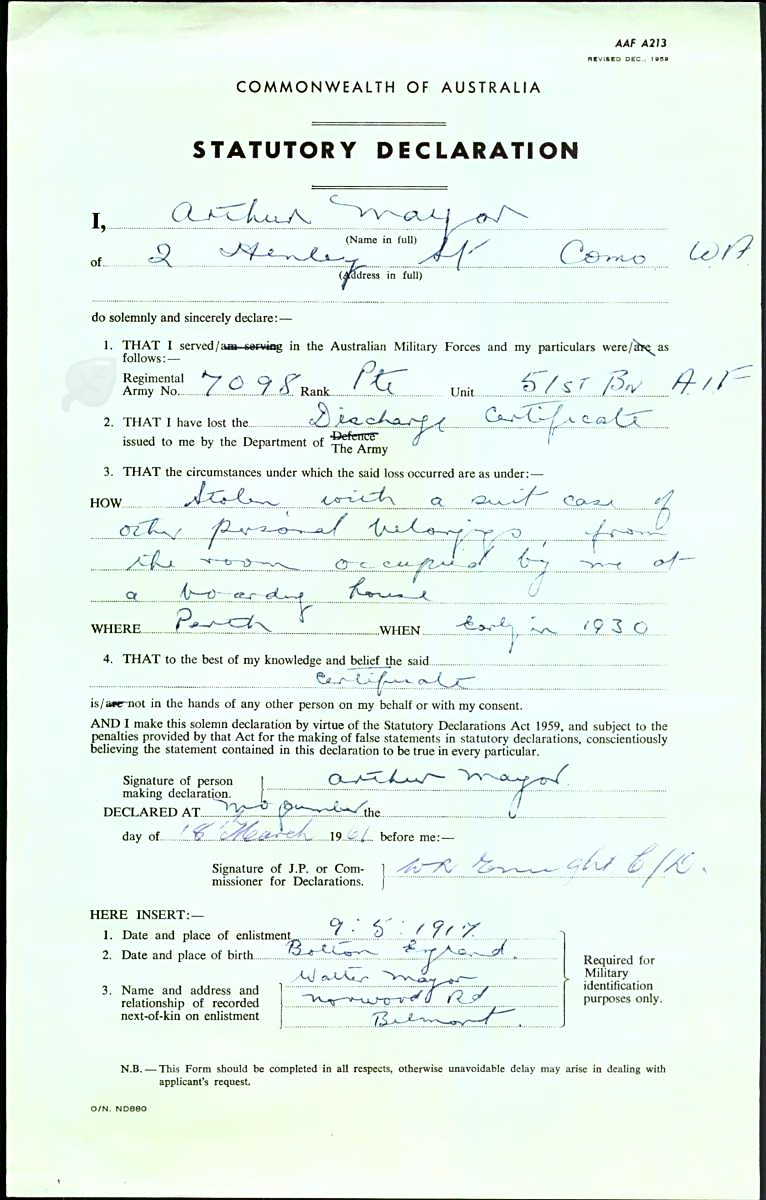 AAF A213
REVISED DEC., 1959
COMMONWEALTH OF AUSTRALIA
STATUTORY DECLARATION
I, Arthur Mayor
(Name in full)
of 2 Henley St Como WA
(Address in full)
do solemnly and sincerely declare:—
1. THAT I served/am serving in the Australian Military Forces and my particulars were/are as
follows:—
Regimental
Army No. 7098 Rank Pte Unit 51ST BN A.I.F
2. THAT I have lost the Discharge Certificate
issued to me by the Department of Defence
The Army
3. THAT the circumstances under which the said loss occurred are as under:—
HOW Stolen with a suit case of
other personal belongings, from
the room occupied by me at
a boarding house
WHERE Perth WHEN Early in 1930
4. THAT to the best of my knowledge and belief the said
Certificate
is/are not in the hands of any other person on my behalf or with my consent.
AND I make this solemn declaration by virtue of the Statutory Declarations Act 1959, and subject to the
penalties provided by that Act for the making of false statements in statutory declarations, conscientiously
believing the statement contained in this declaration to be true in every particular.
Signature of person
making declaration. Arthur Mayor
DECLARED AT the
day of 18 March 1961 before me:—
Signature of J.P. or Com-
missioner for Declarations. C/D.
HERE INSERT:—
1. Date and place of enlistment 9:5:1917
2. Date and place of birth Bolton
3. Name and address and
relationship of recorded
next-of-kin on enlistment
Walter Mayor
Norwood Rd
Belmont.
Required for
Military
identification
purposes only.
N.B.—This Form should be completed in all respects, otherwise unavoidable delay may arise in dealing with
applicant's request.
O/N. ND880